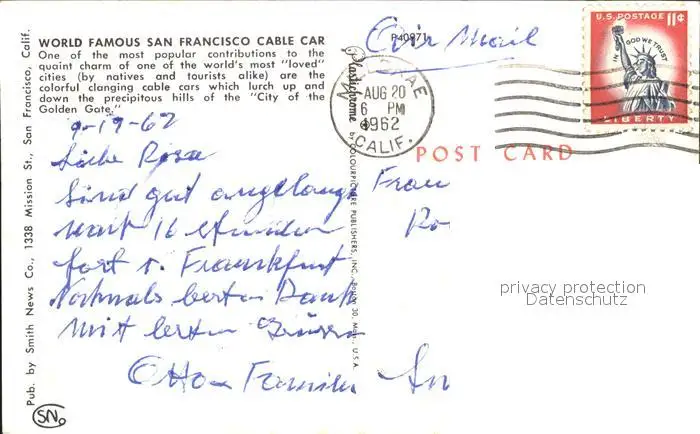 WORLD FAMOUS SAN FRANCISCO CABLE CAR
One of the most popular contributions to the
quaint charm of one of the world's most "loved"
cities (by natives and tourists alike) are the
colorful clanging cable cars which lurch up and
down the precipitous hills of the "City of the
Golden Gate."
9-19-62
Liebe Rosa
Sind gut angelangt
nach 16 Stunden
fort v. Frankfurt
Nochmals besten Dank
Mit besten Grüssen
Otto u Familie
Pub. by Smith News Co., 1338 Mission St., San Francisco, Calif.
SN.
Plastichrome
by COLOURPICTURE PUBLISHERS, INC., Boston 30, Mass., U.S.A.
P40971
Air Mail
AUG 20
6 PM
1962
CALIF.
U.S. POSTAGE 11¢
IN GOD WE TRUST
LIBERTY
POST CARD
Frau
Ro
privacy protection
Datenschutz